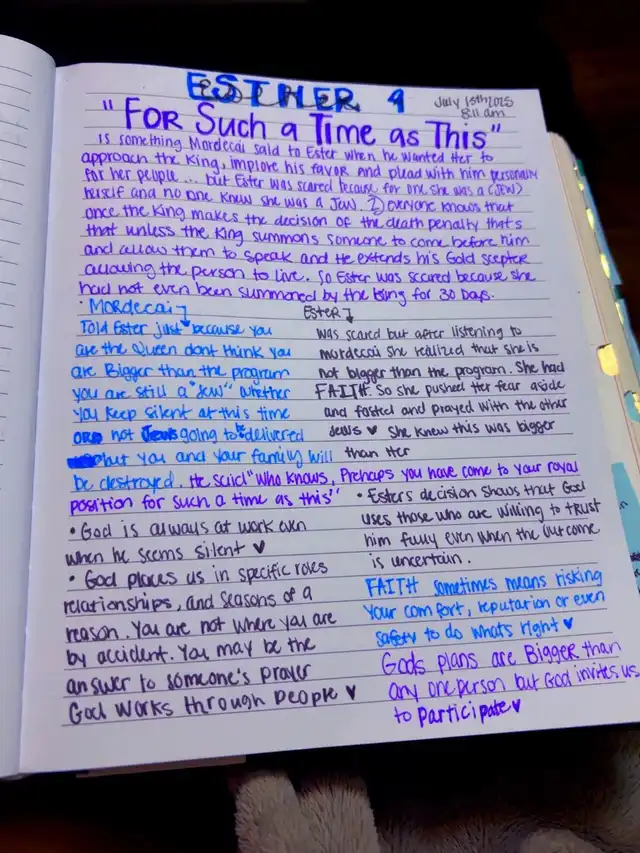 ESTHER 4
July 15th 2025
8:11 am
"FOR Such a Time as This"
is something Mordecai said to Ester when he wanted Her to
approach the King, implore his favor and plead with him personally
for her people... but Ester was scared because for one she was a (JEW)
herself and no one knew she was a Jew. 2) everyone knows that
once the King makes the decision of the death penalty that's
that unless the King summons someone to come before him
and allow them to speak and He extends his Gold scepter
allowing the person to live. So Ester was scared because she
had not even been summoned by the king for 30 Days.
• Mordecai
Told Ester just because you
are the Queen dont think you
are Bigger than the program
you are still a "Jew" whether
you keep silent at this time
or not Jews going to be delivered
but you and your family will
be destroyed. He said "Who knows, Prehaps you have come to your royal
position for such a time as this"
Ester
was scared but after listening to
mordecai she realized that she is
not bigger than the program. She had
FAITH. So she pushed Her fear aside
and fasted and prayed with the other
Jews ♥ She knew this was bigger
than Her
• God is always at work even
when he seems silent ♥
• God places us in specific roles
relationships, and seasons of a
reason. You are not where you are
by accident. You may be the
answer to someone's prayer
God works through people ♥
• Esters decision shows that God
uses those who are willing to trust
him fully even when the outcome
is uncertain.
FAITH sometimes means risking
your comfort, reputation or even
safety to do whats right ♥
Gods plans are Bigger than
any one person but God invites us
to participate ♥